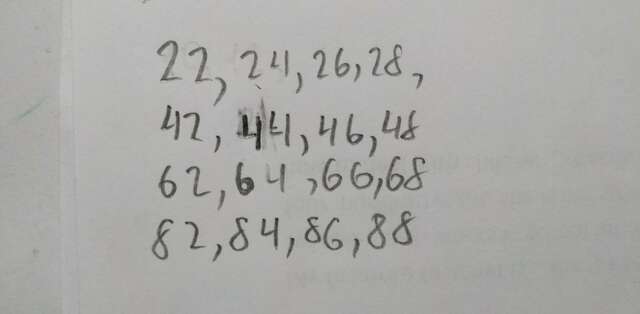 22, 24, 26, 28,
42, 44, 46, 48
62, 64, 66, 68
82, 84, 86, 88